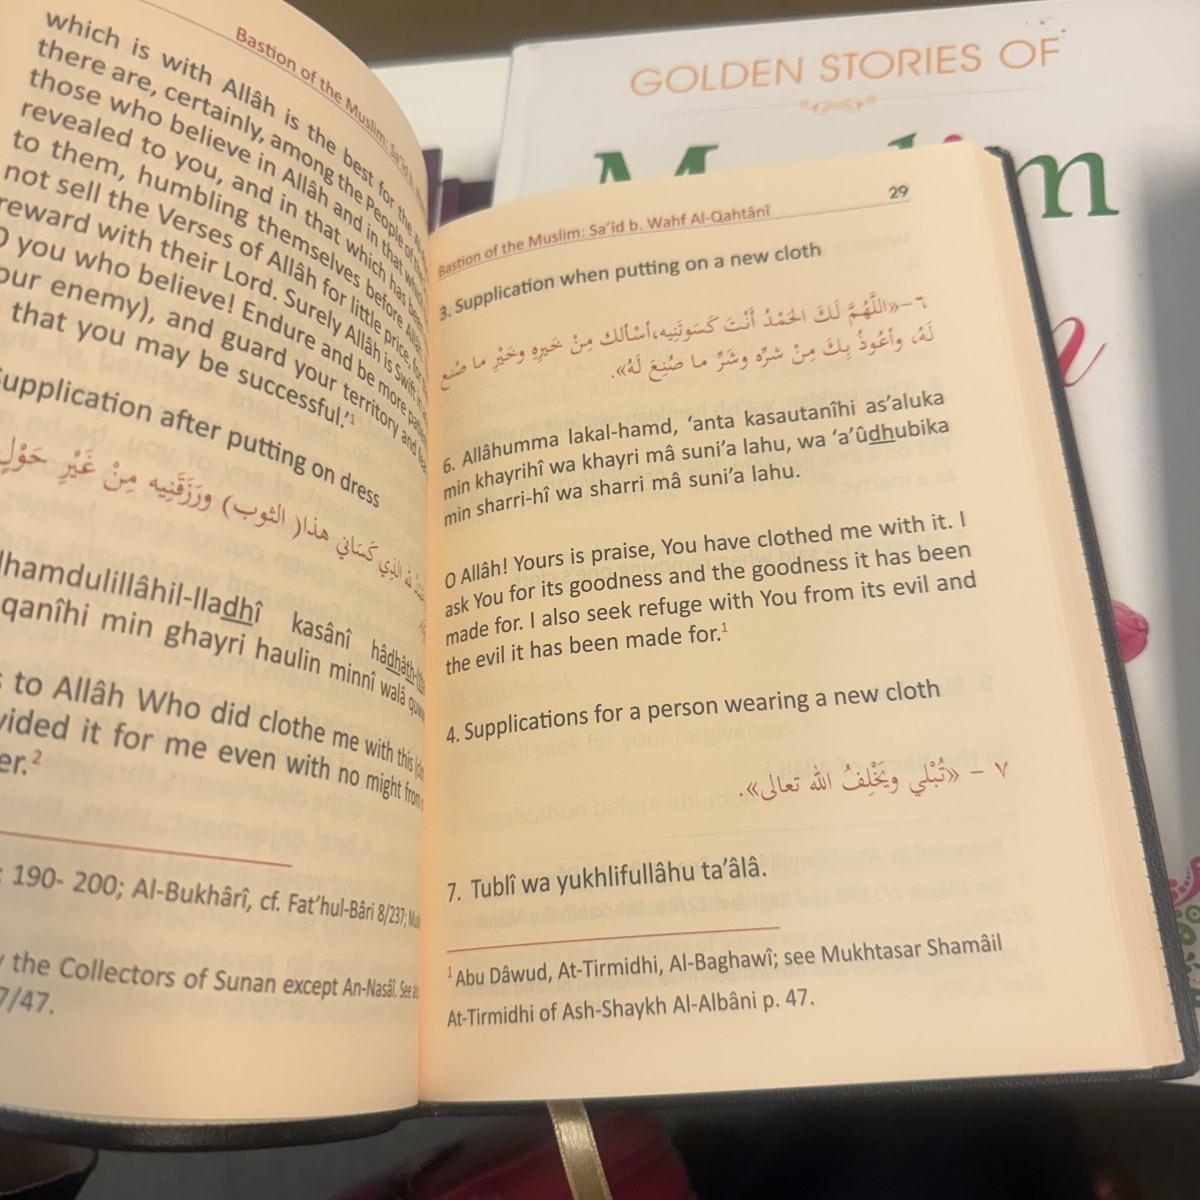 Bastion of the Muslim: Sa'îd b.
which is with Allâh is the best for the
there are, certainly, among the People of the
those who believe in Allâh and in that which
revealed to you, and in that which has been
to them, humbling themselves before Allâh.
not sell the Verses of Allâh for little price, for
reward with their Lord. Surely Allâh is Swift in
you who believe! Endure and be more
our enemy), and guard your territory and
that you may be successful.'¹
Supplication after putting on dress
الذي كَسَاني هذا( الثوب) ورَزَقَنِيه مِنْ غَيْرِ حَوْلٍ
lhamdulillâhil-lladhî kasânî
qanîhi min ghayri haulin minnî walâ
to Allâh Who did clothe me with this
vided it for me even with no might from
er.²
; 190- 200; Al-Bukhârî, cf. Fat'hul-Bâri 8/237;
the Collectors of Sunan except An-Nasâî. See
7/47.
Bastion of the Muslim: Sa'îd b. Wahf Al-Qahtânî 29
3. Supplication when putting on a new cloth
٦–«اللَّهُمَّ لَكَ الحَمْدُ أَنْتَ كَسَوتَنِيه،أسْألك مِنْ خَيرِهِ وخَيْرِ ما صُنِع
لَهُ، وأعُوذُ بِكَ مِنْ شرِّه وشَرِّ ما صُنِعَ لَهُ».
6. Allâhumma lakal-hamd, 'anta kasautanîhi as'aluka
min khayrihî wa khayri mâ suni'a lahu, wa 'a'ûdhubika
min sharri-hî wa sharri mâ suni'a lahu.
O Allâh! Yours is praise, You have clothed me with it. I
ask You for its goodness and the goodness it has been
made for. I also seek refuge with You from its evil and
the evil it has been made for.¹
4. Supplications for a person wearing a new cloth
٧ – «تُبْلي ويَخْلِفُ الله تعالى».
7. Tublî wa yukhlifullâhu ta'âlâ.
¹ Abu Dâwud, At-Tirmidhi, Al-Baghawî; see Mukhtasar Shamâil
At-Tirmidhi of Ash-Shaykh Al-Albâni p. 47.
GOLDEN STORIES OF